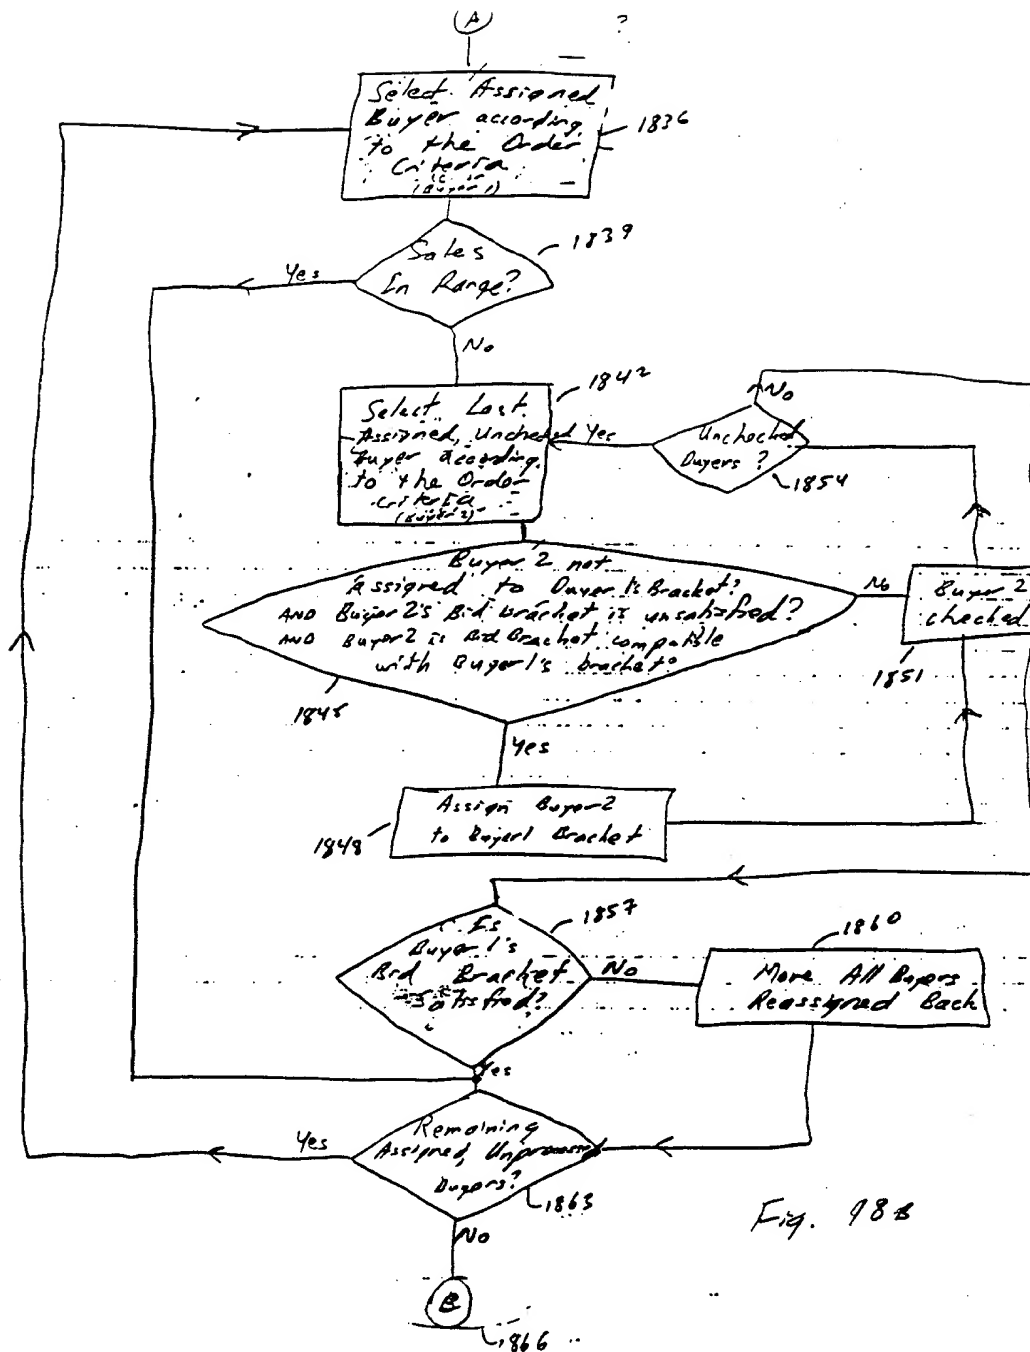 A
?
Select Assigned
Buyer according
to the Order
Criteria
(Buyer 1)
1836
Sales
In Range?
1839
Yes
No
1842
Select Last
Assigned, Unchecked
Buyer according
to the Order
criteria
(Buyer 2)
Yes
Unchecked
Buyers?
No
1854
Buyer 2 not
Assigned to Buyer 1's Bracket?
AND Buyer 2's Bid Bracket is unsatisfied?
AND Buyer 2 is Bid Bracket compatible
with Buyer 1's bracket?
1845
No
Buyer 2
checked
1851
Yes
Assign Buyer 2
to Buyer 1 Bracket
1848
Is
Buyer 1's
Bid Bracket
Satisfied?
1857
No
1860
Move All Buyers
Reassigned Back
Yes
Remaining
Assigned, Unprocessed
Buyers?
Yes
1863
No
B
1866
Fig. 18B